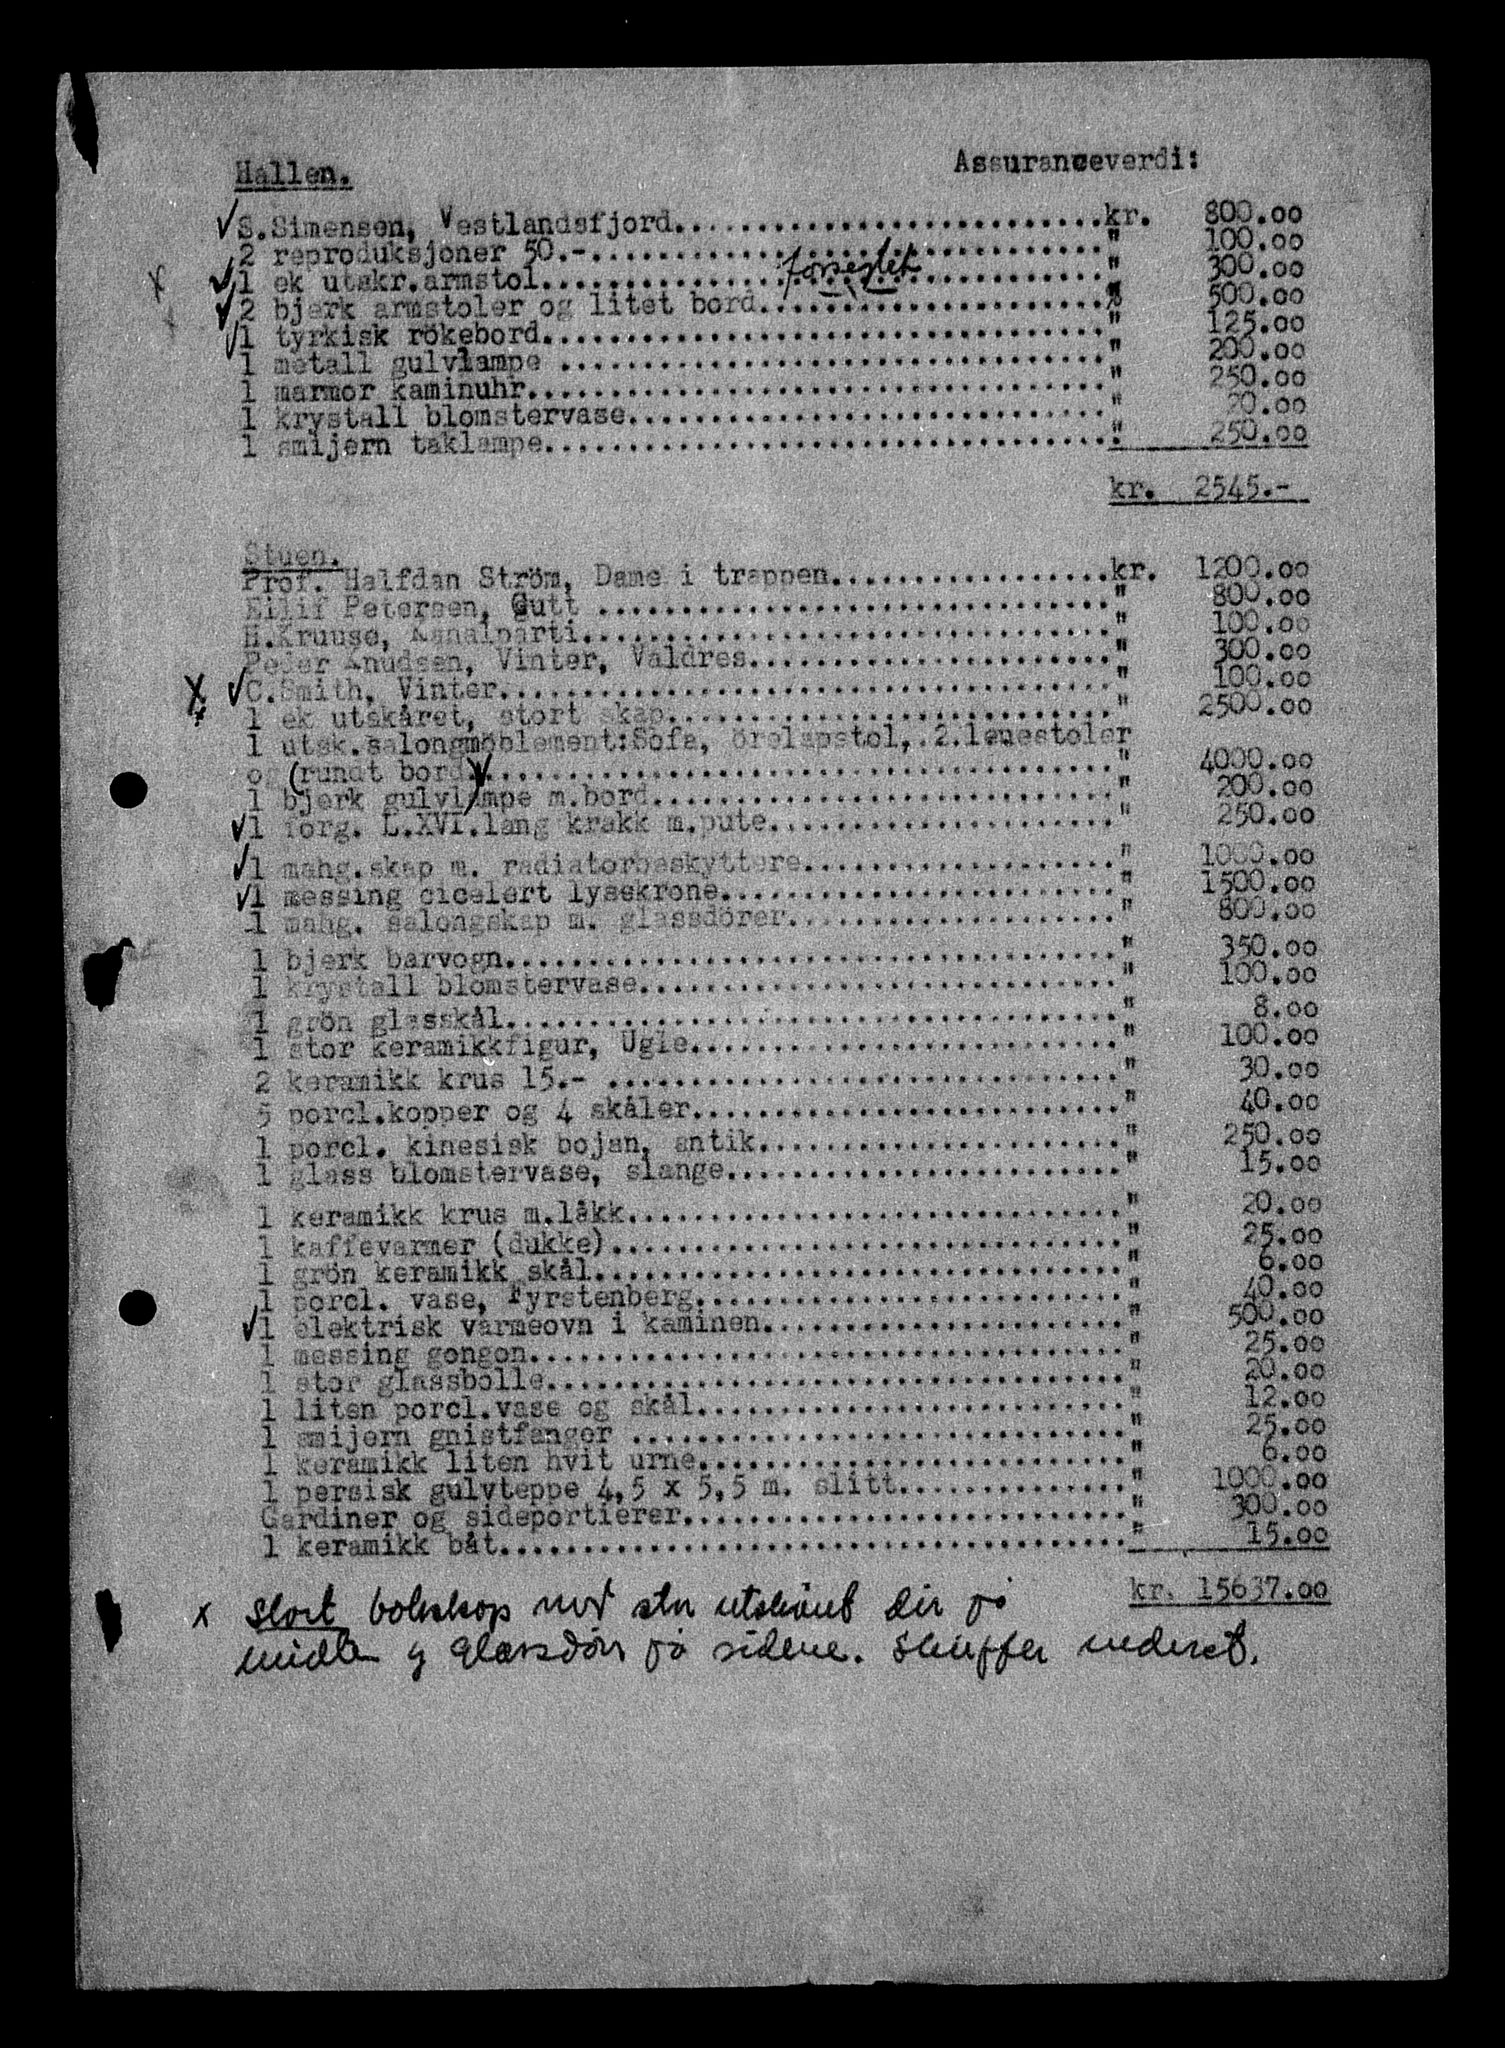 Hallen. Assuranceverdi:
S.Simensen, Vestlandsfjord............................kr. 800.00
2 reproduksjoner 50.-................................." 100.00
1 ek utskr.armstol.......forseglet...................." 300.00
2 bjerk armstoler og litet bord......................." 500.00
1 tyrkisk rökebord...................................." 125.00
1 metall gulvlampe ..................................." 200.00
1 marmor kaminuhr....................................." 250.00
1 krystall blomstervase..............................." 20.00
1 smijern taklampe...................................." 250.00
kr. 2545.-
Stuen.
Prof. Halfdan Ström, Dame i trappen..................kr. 1200.00
Eilif Petersen, Gutt ................................." 800.00
H.Kruuse, Kanalparti.................................." 100.00
Peder Knudsen, Vinter, Valdres........................" 300.00
x C.Smith, Vinter......................................." 100.00
1 ek utskåret, stort skap............................." 2500.00
1 utsk.salongmöblement:Sofa, örelapstol, 2.lenestoler
og (rundt bord)......................................." 4000.00
1 bjerk gulvlampe m.bord.............................." 200.00
1 forg. L.XVI.lang krakk m.pute......................." 250.00
1 mahg.skap m. radiatorbeskyttere....................." 1000.00
1 messing ciselert lysekrone.........................." 1500.00
1 mahg. salongskap m. glassdörer......................" 800.00
1 bjerk barvogn......................................." 350.00
1 krystall blomstervase..............................." 100.00
1 grön glasskål......................................." 8.00
1 stor keramikkfigur, Ugle............................" 100.00
2 keramikk krus 15.- ................................." 30.00
5 porcl.kopper og 4 skåler............................" 40.00
1 porcl. kinesisk bojan, antik........................" 250.00
1 glass blomstervase, slange.........................." 15.00
1 keramikk krus m.låkk................................" 20.00
1 kaffevarmer (dukke)................................." 25.00
1 grön keramikk skål.................................." 6.00
1 porcl. vase, Fyrstenberg............................" 40.00
1 elektrisk varmeovn i kaminen........................" 500.00
1 messing gongon......................................" 25.00
1 stor glassbolle....................................." 20.00
1 liten porcl.vase og skål............................" 12.00
1 smijern gnistfanger ................................" 25.00
1 keramikk liten hvit urne............................" 6.00
1 persisk gulvteppe 4,5 x 5,5 m. slitt................" 1000.00
Gardiner og sideportierer............................." 300.00
1 keramikk båt........................................" 15.00
kr. 15637.00
x Stort bokskap med stor utskåret dør på
midten og glassdører på sidene. Skuffer underst.